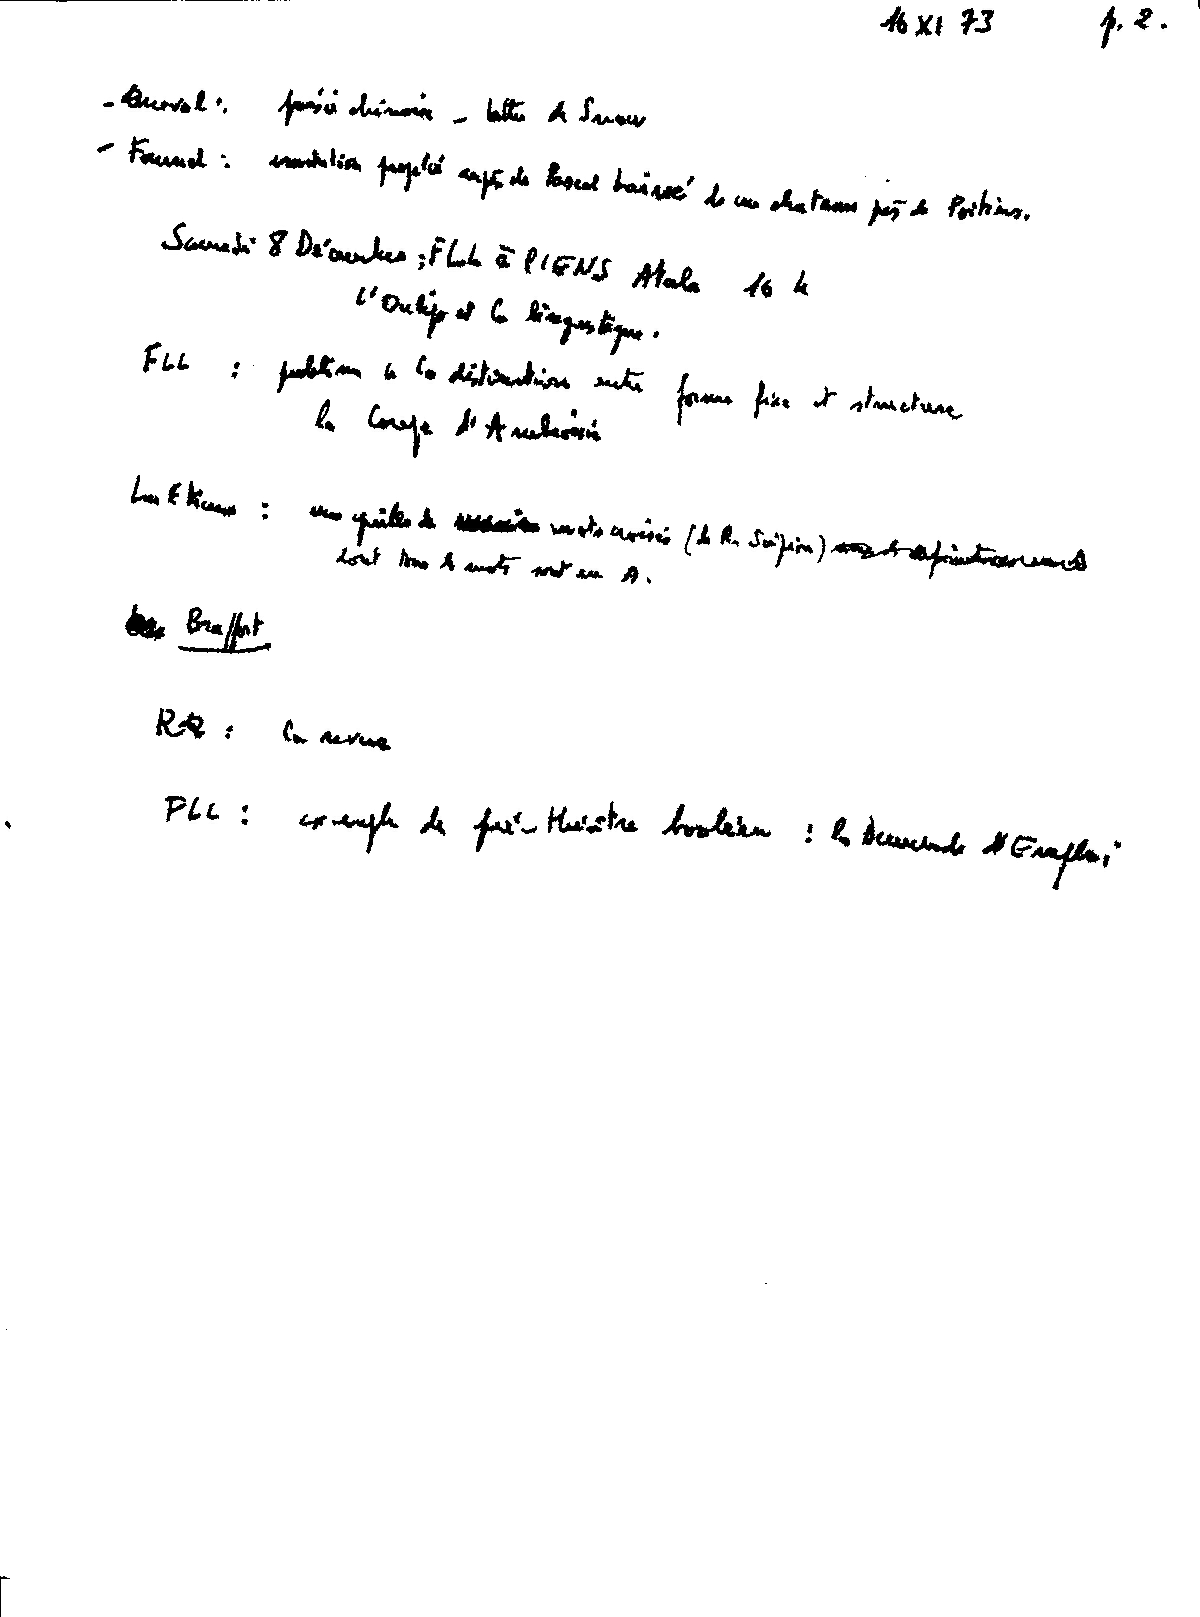 16 XI 73 p. 2.
- Queval : poésie chinoise - lettre de
- Fournel : invitation auprès de Pascal dans un chateau près de Poitiers.
Samedi 8 Décembre ; FLL à l'ENS Atala 16 h
l'Oulipo et la linguistique.
FLL : problème de la distinction entre forme fixe et structure
la Coupe d'Ambroisie
Luc Etienne : une grille de mots croisés (de R. Scipion)
dont tous les mots sont en A.
Braffort
RQ : la revue
FLL : exemple de pré-théâtre booléen : la Demande d'Emploi